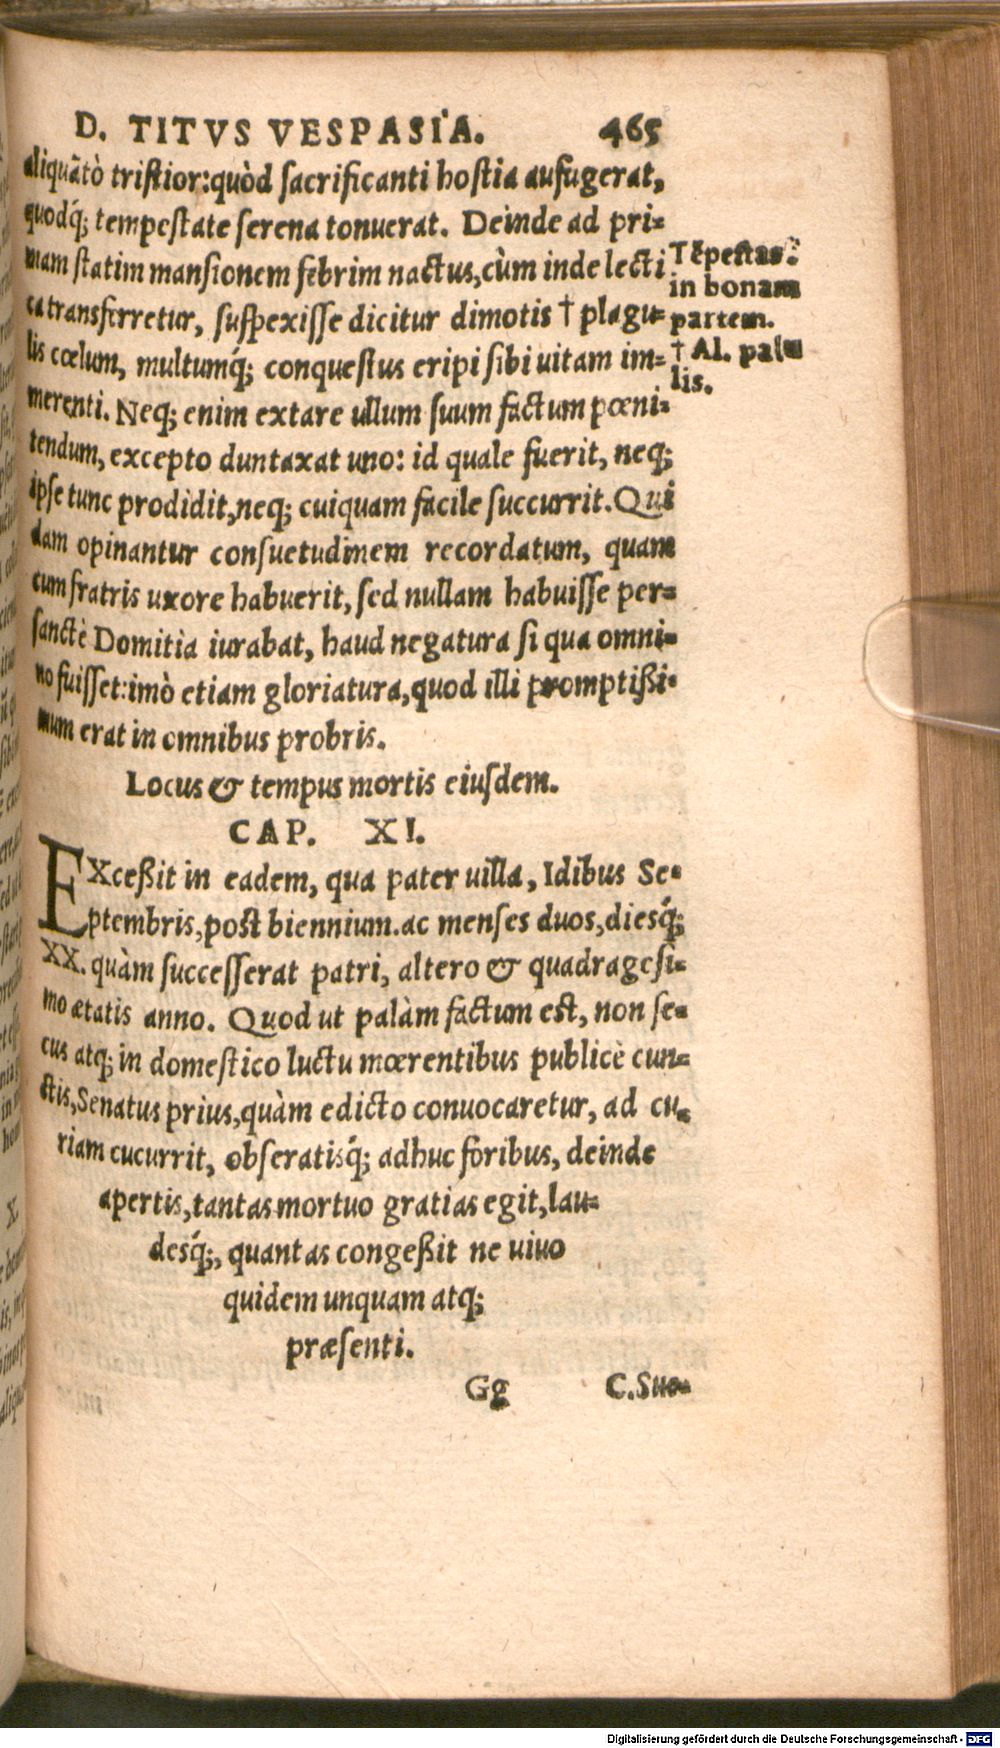 D. TITVS VESPASIA. 465
aliquãtò tristior: quòd sacrificanti hostia aufugerat,
quodq́; tempestate serena tonuerat. Deinde ad pri-
mam statim mansionem febrim nactus, cùm inde lecti
ca transferretur, suspexisse dicitur dimotis † plagu-
lis cœlum, multumq́; conquestus eripi sibi uitam im-
merenti. Neq; enim extare ullum suum factum pœni-
tendum, excepto duntaxat uno: id quale fuerit, neq;
ipse tunc prodidit, neq; cuiquam facile succurrit. Qui
dam opinantur consuetudinem recordatum, quam
cum fratris uxore habuerit, sed nullam habuisse per-
sanctè Domitia iurabat, haud negatura si qua omni-
no fuisset: imò etiam gloriatura, quod illi promptißi-
mum erat in omnibus probris.
Tẽpestas
in bonam
partem.
† Al. palu
lis.
Locus & tempus mortis eiusdem.
CAP. XI.
EXceßit in eadem, qua pater uilla, Idibus Se-
ptembris, post biennium. ac menses duos, diesq́;
XX. quàm successerat patri, altero & quadragesi-
mo ætatis anno. Quod ut palàm factum est, non se-
cus atq; in domestico luctu mœrentibus publicè cun-
ctis, Senatus prius, quàm edicto conuocaretur, ad cu-
riam cucurrit, obseratisq́; adhuc foribus, deinde
apertis, tantas mortuo gratias egit, lau-
desq́;, quantas congeßit ne uiuo
quidem unquam atq;
præsenti.
Gg C.Sue-
Digitalisierung gefördert durch die Deutsche Forschungsgemeinschaft - DFG